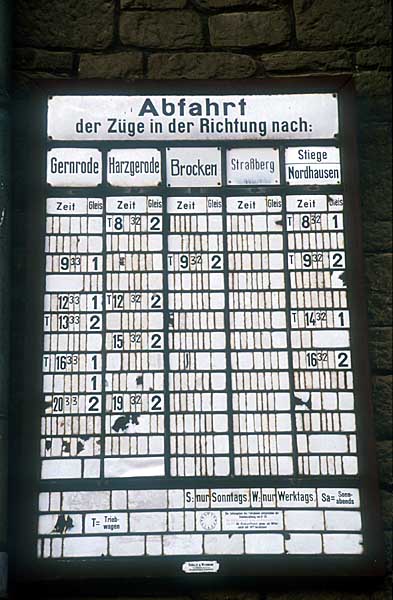 Abfahrt
der Züge in der Richtung nach:
Gernrode Harzgerode Brocken Straßberg Stiege Nordhausen
Zeit Gleis Zeit Gleis Zeit Gleis Zeit Gleis Zeit Gleis
T 8 32 2 T 8 32 1
9 33 1 T 9 32 2 T 9 32 2
12 33 1 T 12 32 2
T 13 33 2 T 14 32 1
15 32 2
T 16 33 1 16 32 2
1
20 33 2 19 32 2
S: nur Sonntags. W: nur Werktags. Sa= Sonnabends
T= Triebwagen